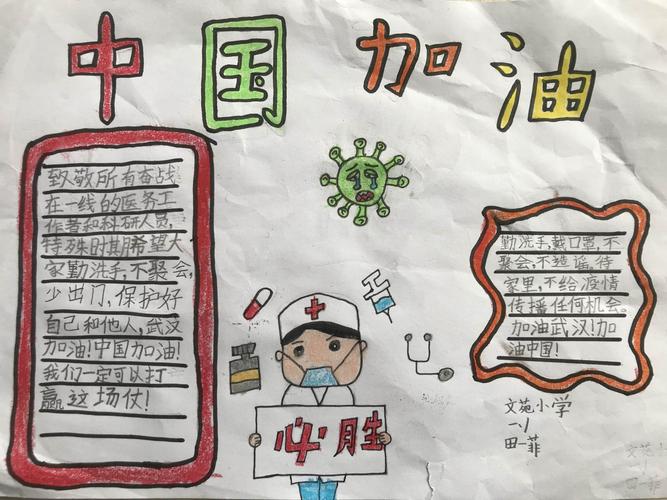 中国加油
致敬所有奋战
在一线的医务工
作者和科研人员,
特殊时期希望大
家勤洗手,不聚会,
少出门,保护好
自己和他人,武汉
加油!中国加油!
我们一定可以打
赢这场仗!
勤洗手,戴口罩,不
聚会,不造谣,待
家里,不给疫情
传播任何机会。
加油武汉!加
油中国!
心胜
文苑小学
田一菲